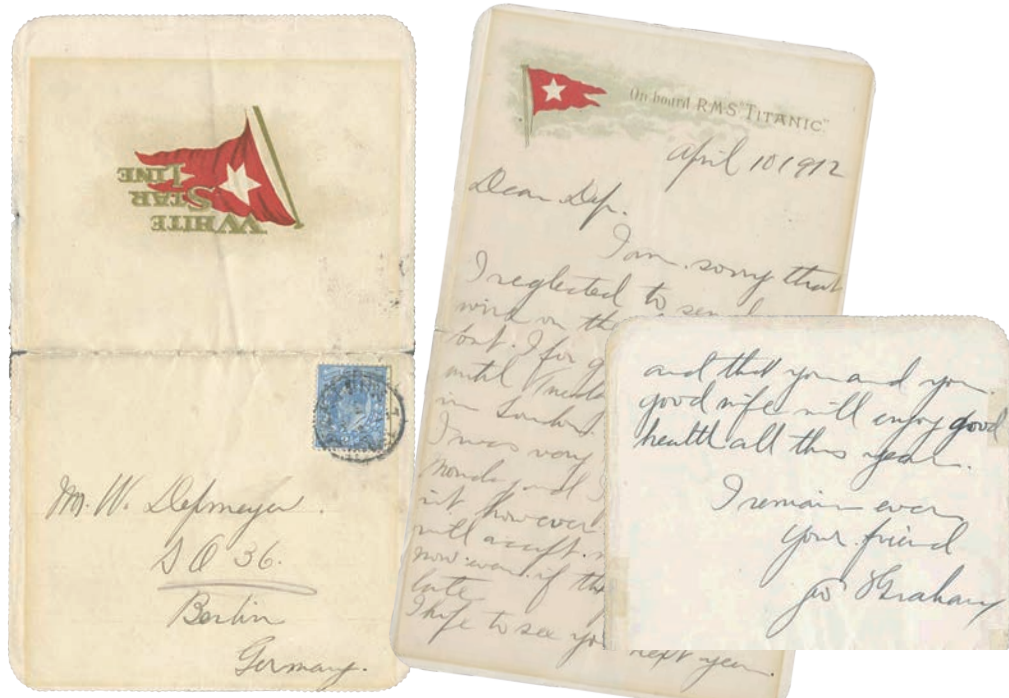 WHITE
STAR
LINE
Mr. W. Depmeyer.
S O 36.
Berlin
Germany.
On board R.M.S. "TITANIC."
April 10 1912
Dear Dep.
I am sorry that
I neglected to send
wire on the
but. I
until
in London.
I was very
Monday and I
however
will accept
now even if
late
I hope to see you next year.
and that you and your
good wife will enjoy good
health all this year.
I remain ever
your friend
Graham